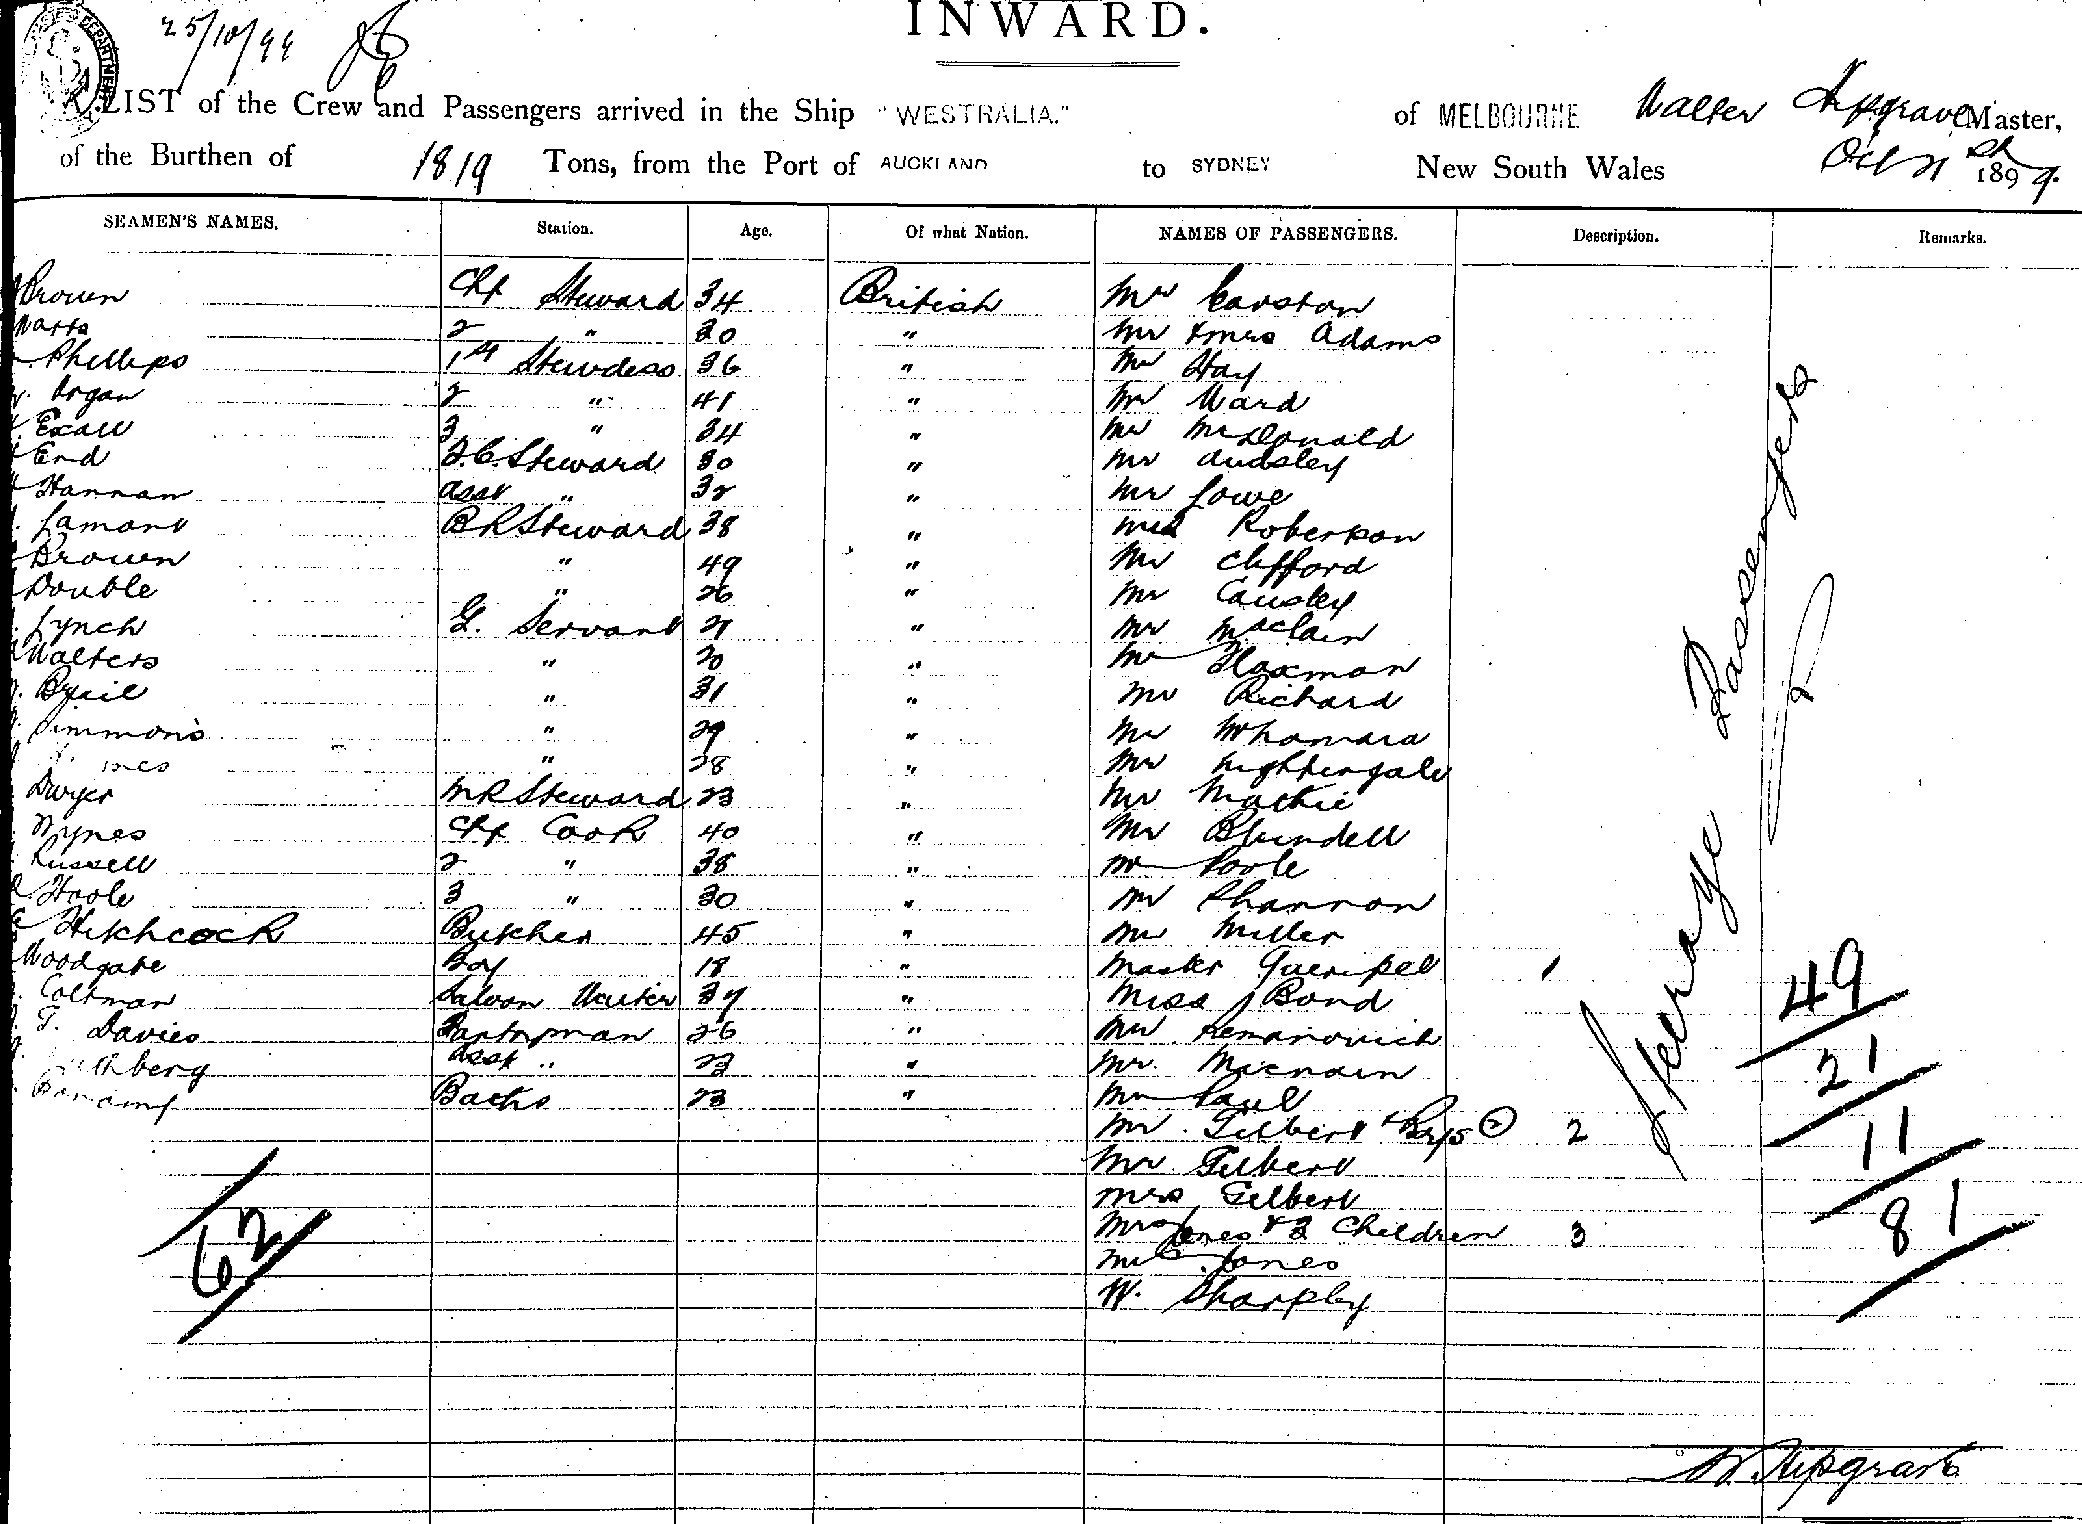 INWARD.
25/10/99
LIST of the Crew and Passengers arrived in the Ship "WESTRALIA." of MELBOURNE Walter Master,
of the Burthen of 1819 Tons, from the Port of AUCKLAND to SYDNEY New South Wales Oct 21st 1899.
SEAMEN'S NAMES. Station. Age. Of what Nation. NAMES OF PASSENGERS. Description. Remarks.
Brown Chf Steward 34 British Mr Carston
Watts 2 " 30 " Mr & Mrs Adams
Phillips 1st Stewdess 36 " Mr Hay
Organ 2 " 41 " Mr Ward
Excell 3 " 34 " Mr McDonald
End F.C. Steward 30 " Mr Audsley
Hannan Asst " 32 " Mr Lowe
Lamont B R Steward 38 " Roberson
Brown " 49 " Mr Clifford
Double " 26 " Mr Causley
Lynch G. Servant 21 " Mr Maclain
Walters " 20 " Mr Flaxman
" 31 " Mr Richard
Simmons " 29 " Mr
" 28 " Mr Nightingale
Dwyer M R Steward 23 " Mr Mathie
Wynes Chf Cook 40 " Mr Blundell
Russell 2 " 38 " Mr Poole
Hoole 3 " 30 " Mr Shannon
Hitchcock Butcher 45 " Mr Miller
Woodgate Boy 18 " Master 1
Coltman Saloon Waiter 37 " Miss J Bond
F. Davies Pantryman 26 " Mr
Asst " 23 " Mr. Macnain
Baths 23 " Mr Paul
Mr. Gilbert & Boys (2) 2
Mr Gilbert
Mrs Gilbert
Mrs Jones & 3 Children 3
Jones
W. Sharpley
Steerage Passengers
49
21
11
81
62
W. Hipgrave